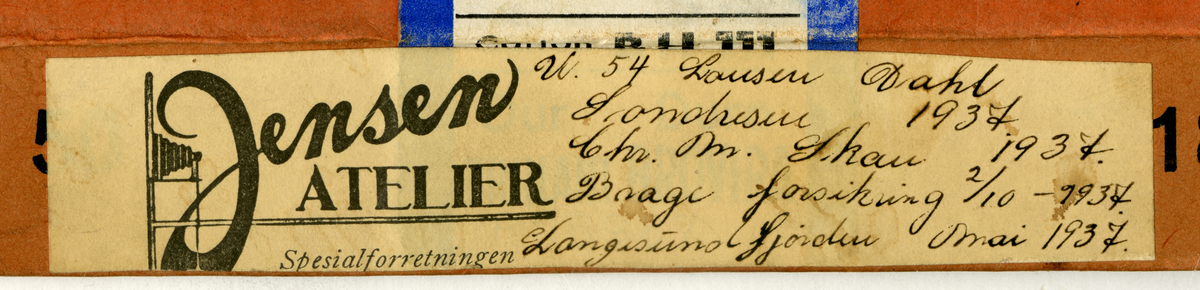 Jensen
ATELIER
Spesialforretningen
U. 54 Lausen Dahl
Sondresen 1937
Chr. M. Skau 1937.
Brage forsikring 2/10 - 1937.
Langesund fjorden Mai 1937.